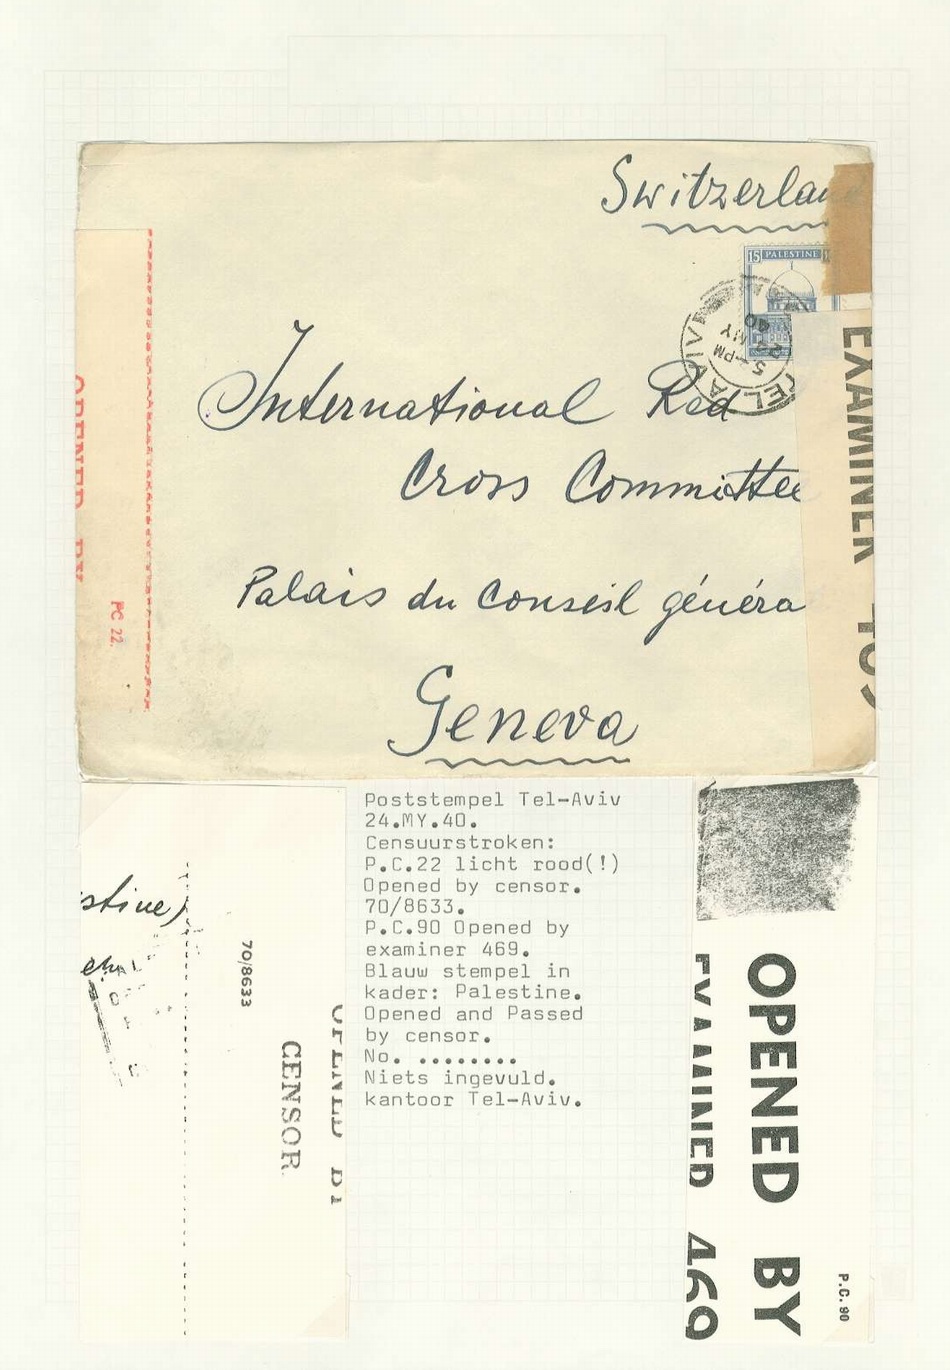 Switzerlan
15 PALESTINE
TEL AVIV
5-PM
24 MY
40
International Red
Cross Committee
Palais du Conseil généra
Geneva
OPENED BY
PC 22.
EXAMINER 469
stine)
70/8633
OPENED BY
CENSOR
Poststempel Tel-Aviv
24.MY.40.
Censuurstroken:
P.C.22 licht rood(!)
Opened by censor.
70/8633.
P.C.90 Opened by
examiner 469.
Blauw stempel in
kader: Palestine.
Opened and Passed
by censor.
No. ........
Niets ingevuld.
kantoor Tel-Aviv.
OPENED BY
EXAMINER 469
P.C. 90